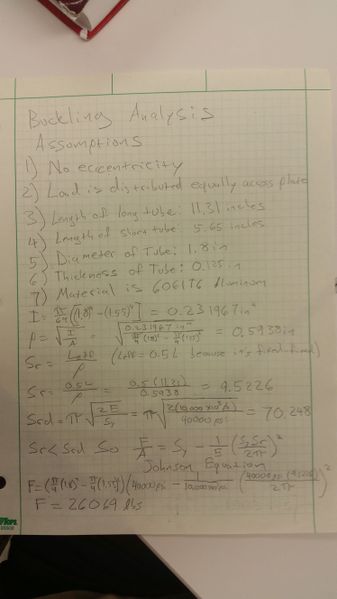 Buckling Analysis
Assumptions
1) No eccentricity
2) Load is distributed equally across plate
3) Length of long tube: 11.31 inches
4) Length of short tube: 5.65 inches
5) Diameter of Tube: 1.8 in
6) Thickness of Tube: 0.125 in
7) Material is 6061T6 Aluminum
I = π/64 [(1.8)⁴ - (1.55)⁴] = 0.231967 in⁴
ρ = √(I/A) = √(0.231967 in⁴ / (π/4 (1.8)² - π/4 (1.55)²)) = 0.5938 in
Sr = Leff/ρ (Leff = 0.5L because it's fixed-fixed)
Sr = 0.5L/ρ = 0.5(11.31)/0.5938 = 9.5226
Srd = π√(2E/Sy) = π√(2(10,000x10³)/40000 psi) = 70.248
Sr < Srd So F/A = Sy - 1/E (SySr/2π)²
Johnson Equation
F = (π/4(1.8)² - π/4(1.55)²)(40000 psi - 1/ (40000 psi (9.5226)/2π)²
F = 26069 lbs